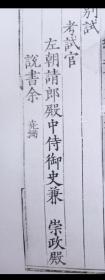 別試
考試官
左朝請郎殿中侍御史兼 崇政殿
說書余 堯弼